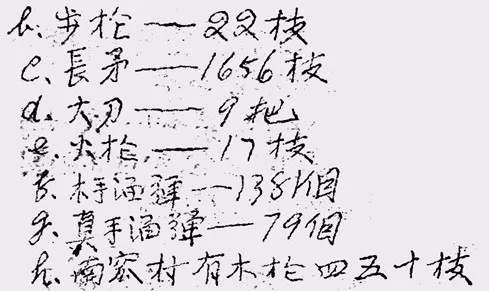 b. 步枪——22枝
c. 長矛——1656枝
d. 大刀——9把
e. 火枪——17枝
f. 木手溜彈——138个個
g. 真手溜彈——79個
h. 南宻村有木枪四五十枝